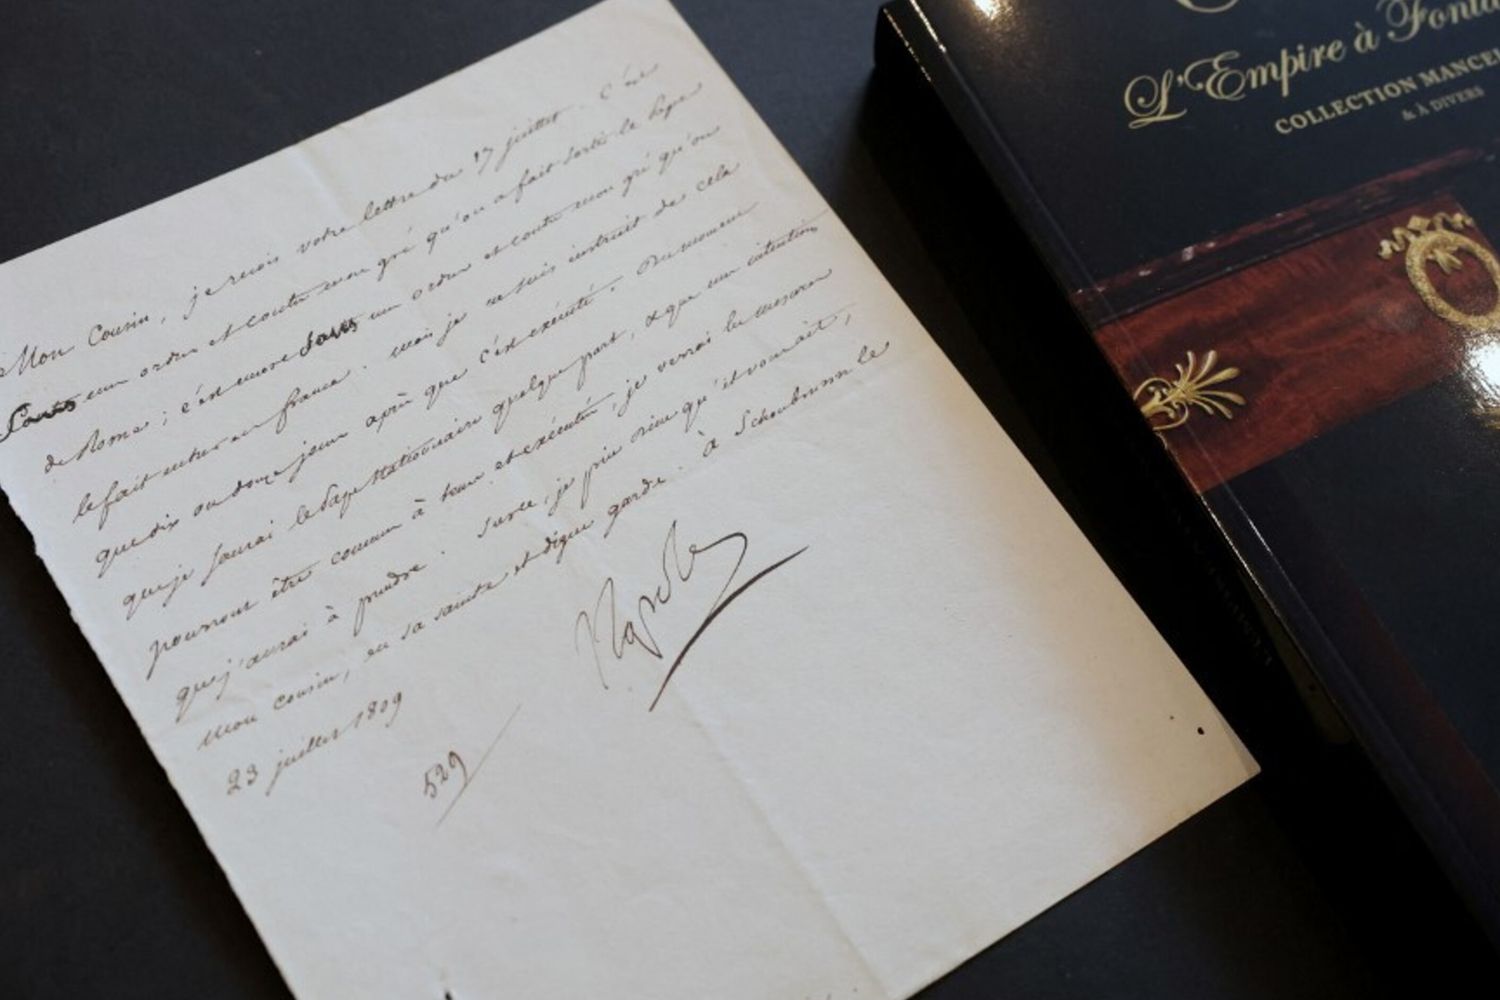 Mon Cousin, je reçois votre lettre du 17 juillet. C'est
sans mon ordre et contre mon gré qu'on a fait sortir le Pape
de Rome; c'est encore sans mon ordre et contre mon gré qu'on
le fait entrer en france. mais je ne suis instruit de cela
que dix ou douze jours après que c'est exécuté. Du moment
que je saurai le Pape stationnaire quelque part, & que mes intentions
pourront être connues à tems et exécutées, je verrai les mesures
que j'aurai à prendre. Sur ce, je prie Dieu qu'il vous ait,
mon cousin, en sa sainte et digne garde. à Schoenbrunn le
23 juillet 1809
Napole
529
L'Empire à Fonta
COLLECTION MANCEL
& À DIVERS